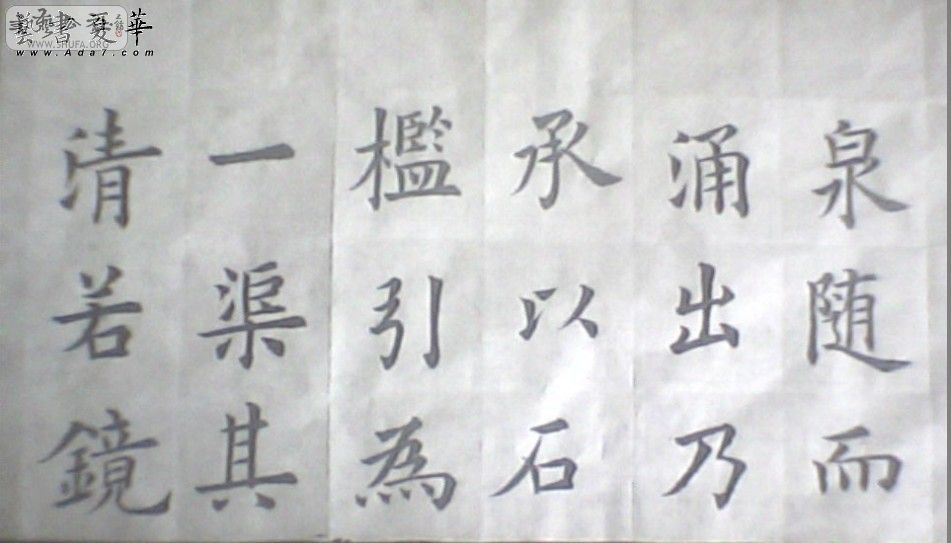 泉随而
涌出乃
承以石
檻引為
一渠其
清若鏡
WWW.SHUFA.ORG
www.Ada7.com